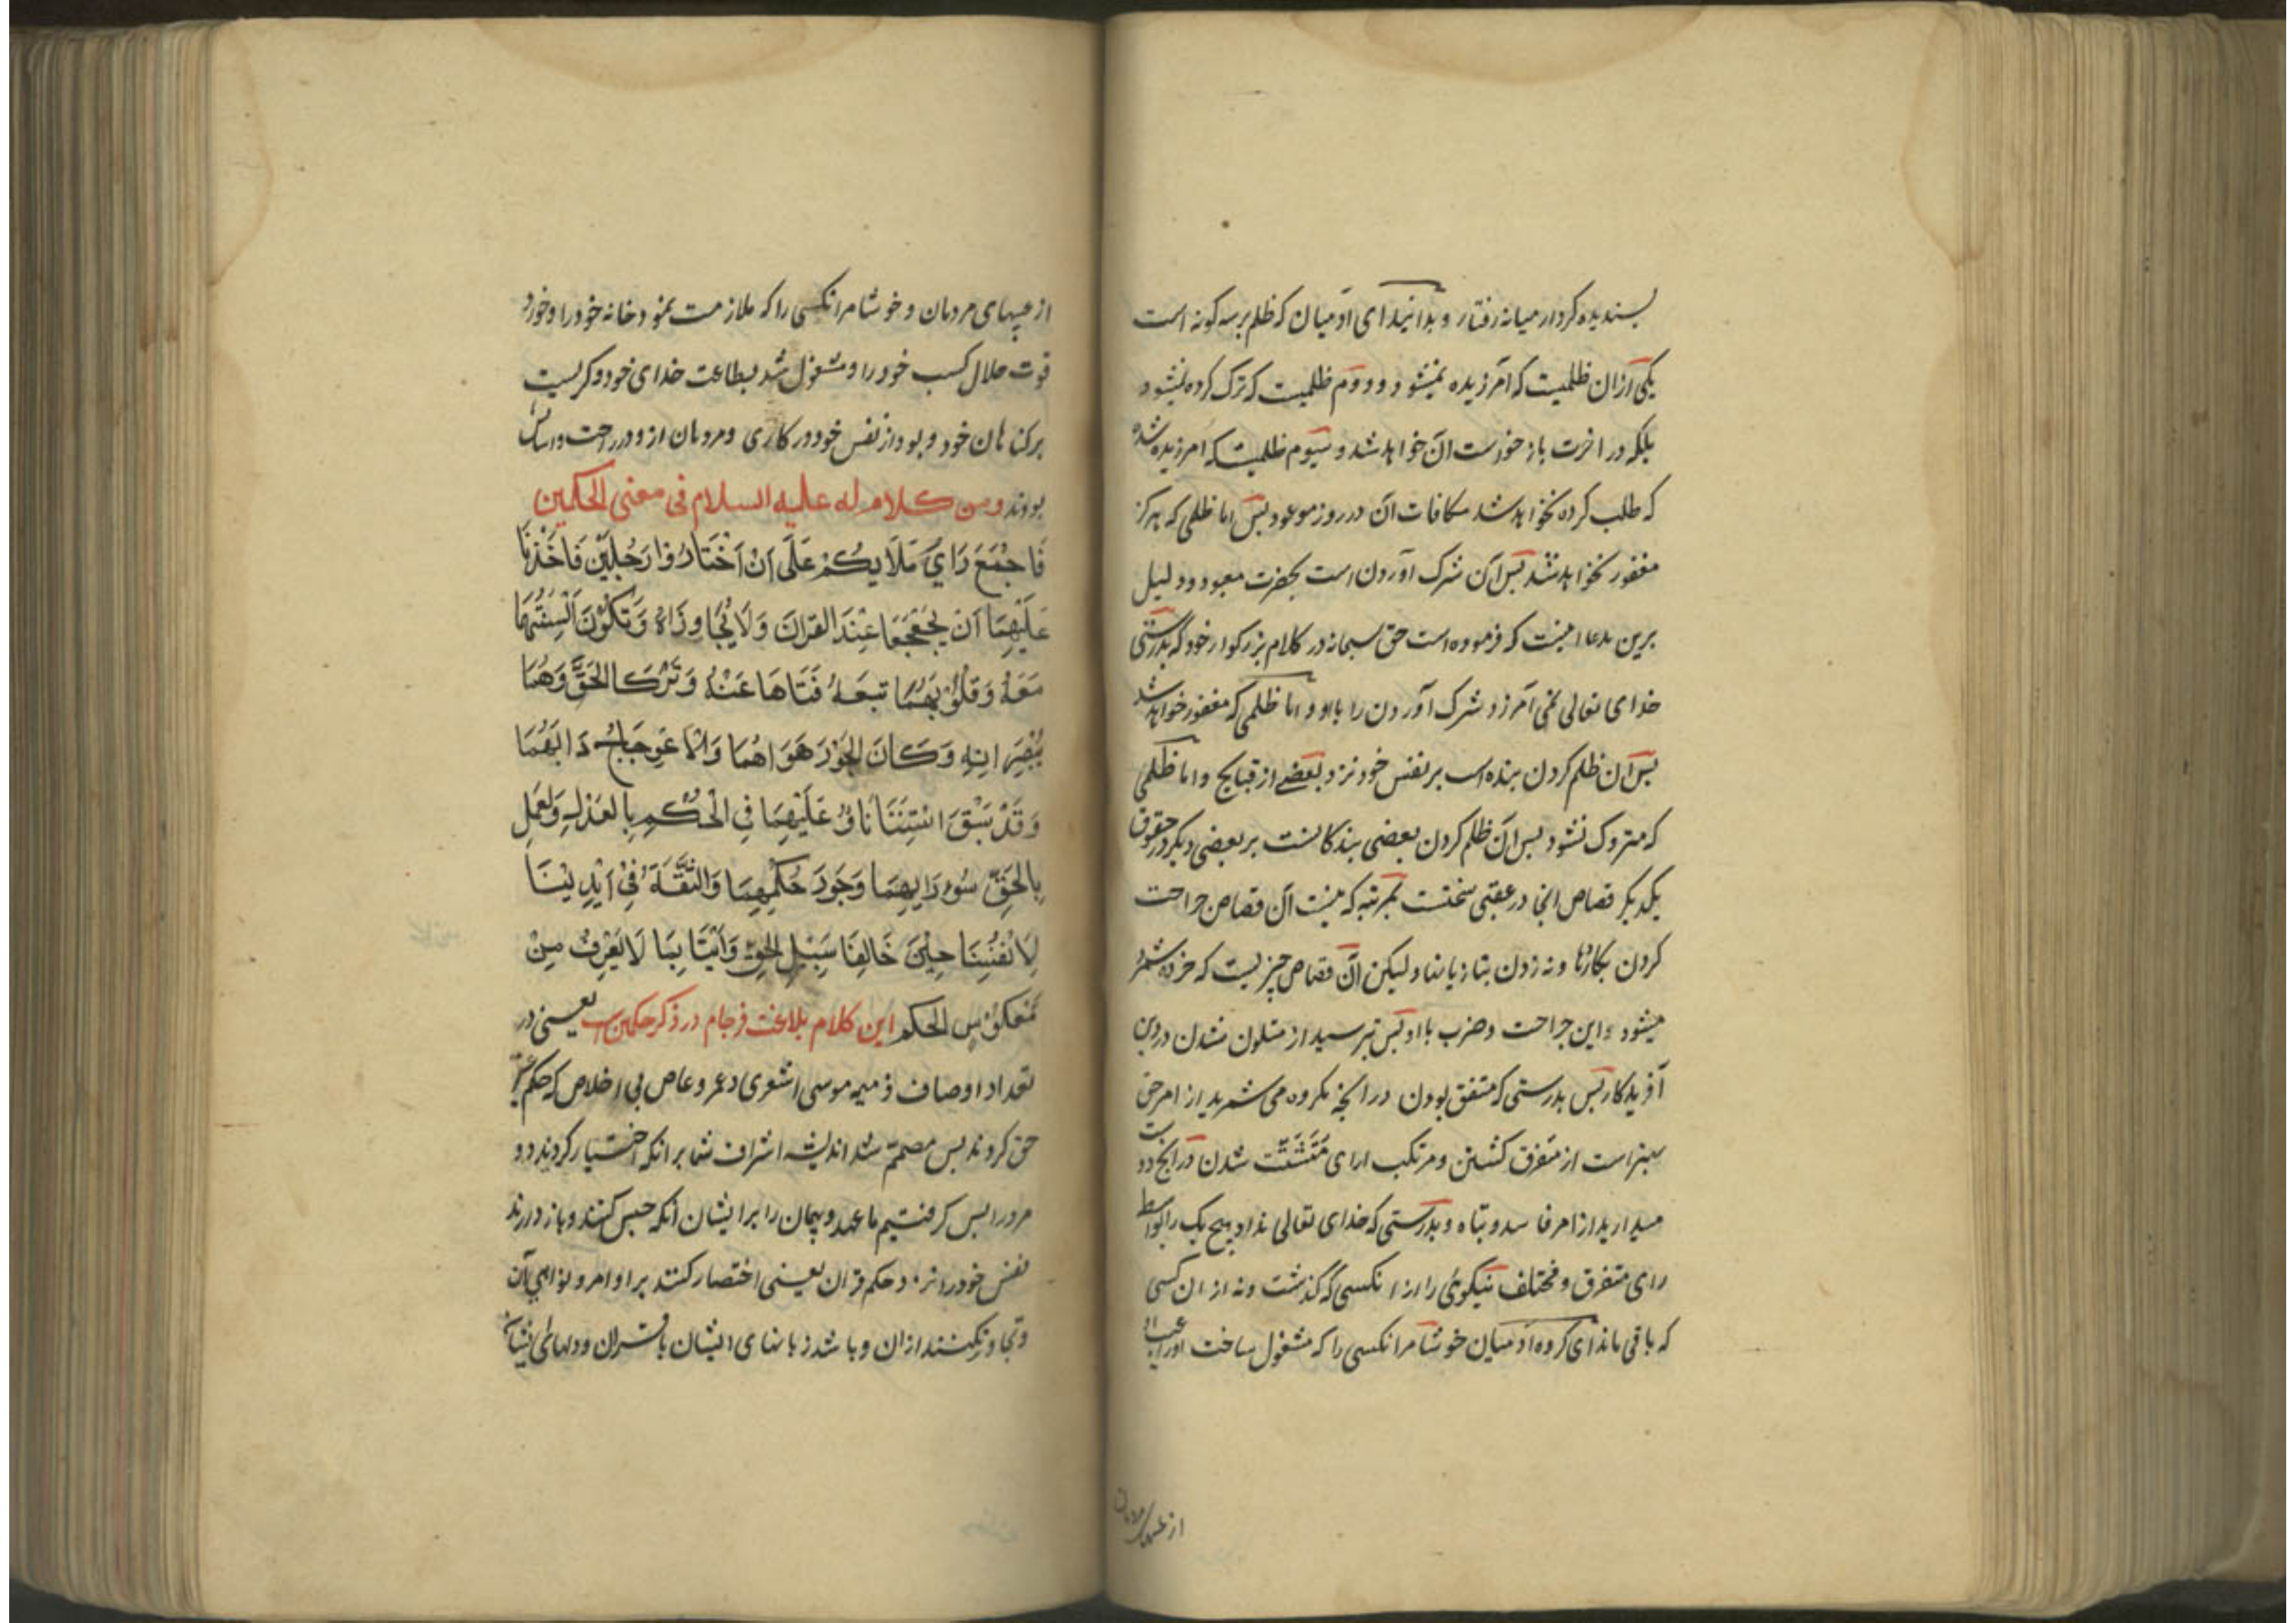 پسندیده کردار میانه رفتار و بدانید ای آدمیان که ظلم بر سه کونه است
یکی ازان ظلمیست که آمرزیده نمیشود و دووم ظلمیست که ترک کرده نمیشود
بلکه در اخرت باز خواست آن خواهد شد و سیوم ظلمیست که امرزیده شده
که طلب کرده نخواهد شد مکافات آن در روز موعود پس اما ظلمی که هرکز
مغفور نخواهد شد پس آن شرک آوردن است بحضرت معبود و دلیل
برین مدعا اینست که فرموده است حق سبحانه در کلام بزرکوار خود که بدرستی
خدای تعالی نمی آمرزد شرک آوردن را باو و اما ظلمی که مغفور خواهد شد
پس آن ظلم کردن بنده است بر نفس خود نزد بعضی از قبایح و اما ظلمی
که متروک نشود پس آن ظلم کردن بعضی بندکانست بر بعضی دیکر در حقوق
یکدیکر قصاص انجا در عقبی سختست بمرتبه که نیست آن قصاص جراحت
کردن بکاردها و نه زدن بتازیانها ولیکن آن قصاص چیزیست که خرده شمرده
میشود این جراحت و ضرب با او پس بترسید از متلون شدن در دین
آفریدکار پس بدرستی که متفق بودن در انچه مکروه می شمرید از امر حق
بهتر است از متفرق کشتن و مرتکب ارای متشتت شدن در انچه دوست
میدارید از امر فاسد و تباه و بدرستی که خدای تعالی نداد هیچ یک را بواسطه
رای متفرق و مختلف نیکوئی را از انکسی که گذشت و نه از ان کسی
که باقی ماند ای کروه آدمیان خوشا مر انکسی را که مشغول ساخت اورا عیب او
از عیبهای مردمان
از عیبهای مردمان و خوشا مر انکسی را که ملازمت نمود خانه خود را و خورد
قوت حلال کسب خود را و مشغول شد بطاعت خدای خود و کریست
بر کناهان خود و بود از نفس خود در کاری و مردمان از و در راحت و اسایش
بودند ومن کلام له علیه السلام فی معنی الحکمین
فَاجْمَعَ رَایُ مَلَایِکُمْ عَلَی اَنْ اَخْتَارُوا رَجُلَیْنِ فَاَخَذْنَا
عَلَیْهِمَا اَنْ یُجَعْجِعَا عِنْدَ القرانِ وَلَا یُجَاوِزَاهُ وَتَکُوْنَ اَلْسِنَتُهُمَا
مَعَهُ وَقُلُوْبُهُمَا تبعَهُ فَتَاهَا عَنْهُ وَتَرَکَا الحَقَّ وَهُمَا
یُبْصِرَانِهِ وَکَانَ الجَوْرُ هَوَاهُمَا وَالاعوِجَاجُ دَابَهُمَا
وَقَدْ سَبَقَ اسْتِثْنَاؤُنَا عَلَیْهِمَا فِی الْحُکْمِ بِالعَدْلِ وَالعَمَلِ
بِالحَقِّ سُوءَ رَایِهِمَا وَجَورَ حُکْمِهِمَا وَالثِّقَةُ فِیْ اَیْدِیْنَا
لِاَنْفُسِنَا حِیْنَ خَالَفَا سَبِیْلَ الحَقِّ وَاَتَیَا بِمَا لَا یُعْرَفُ مِنْ
مَعکُوْسِ الحکم این کلام بلاغت فرجام در ذکر حکمین است یعنی در
تعداد اوصاف ذمیمه موسی اشعری و عمرو عاص بی اخلاص که حکم بغیر
حق کردند پس مصمم شد اندیشه اشراف شما بر انکه اختیار کردند دو
مرد را پس کرفتیم ما عهد و پیمان را بر ایشان آنکه حبس کنند و باز دارند
نفس خود را نزد حکم قران یعنی اختصار کنند بر اوامر و نواهی آن
و تجاوز نکنند از ان و باشد زبانهای ایشان با قران و دلهای ایشان